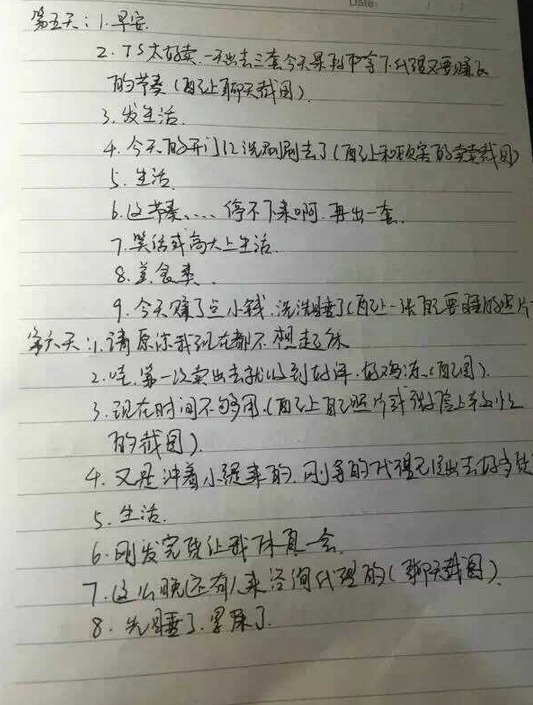 Date:
第五天：1.早安.
2. TS太好卖.一天出去三套今天是到中等下代理又要赚
的节奏（配上聊天截图）.
3. 发生活.
4. 今天的开门红洗刷刷去了（配上和顾客的卖截图）
5. 生活.
6. 这节奏.....停不下来啊.再出一套.
7. 笑话或高大上生活.
8. 美食类.
9. 今天赚了点小钱.洗洗睡了（配上一张自己要睡的照片
第六天：1. 请原谅我现在都不想起休
2. 哇.第一次卖出去就收到好评.好鸡冻.（配图）.
3. 现在时间不够用.（配上自己照片或微信上
的截图）.
4. 又是冲着小提来的.刚务的代理已经出去好多货
5. 生活.
6. 刚发完货让我休息一会.
7. 这么晚还有人来咨询代理的（聊天截图）.
8. 先睡了.累屎了.